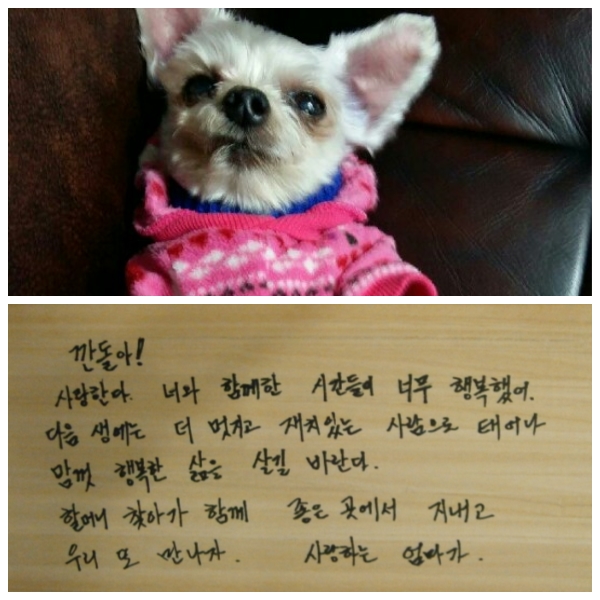 깐돌아!
사랑한다. 너와 함께한 시간들이 너무 행복했어.
다음 생에는 더 멋지고 재치있는 사람으로 태어나
맘껏 행복한 삶을 살길 바란다.
할머니 찾아가 함께 좋은 곳에서 지내고
우리 또 만나자. 사랑하는 엄마가.